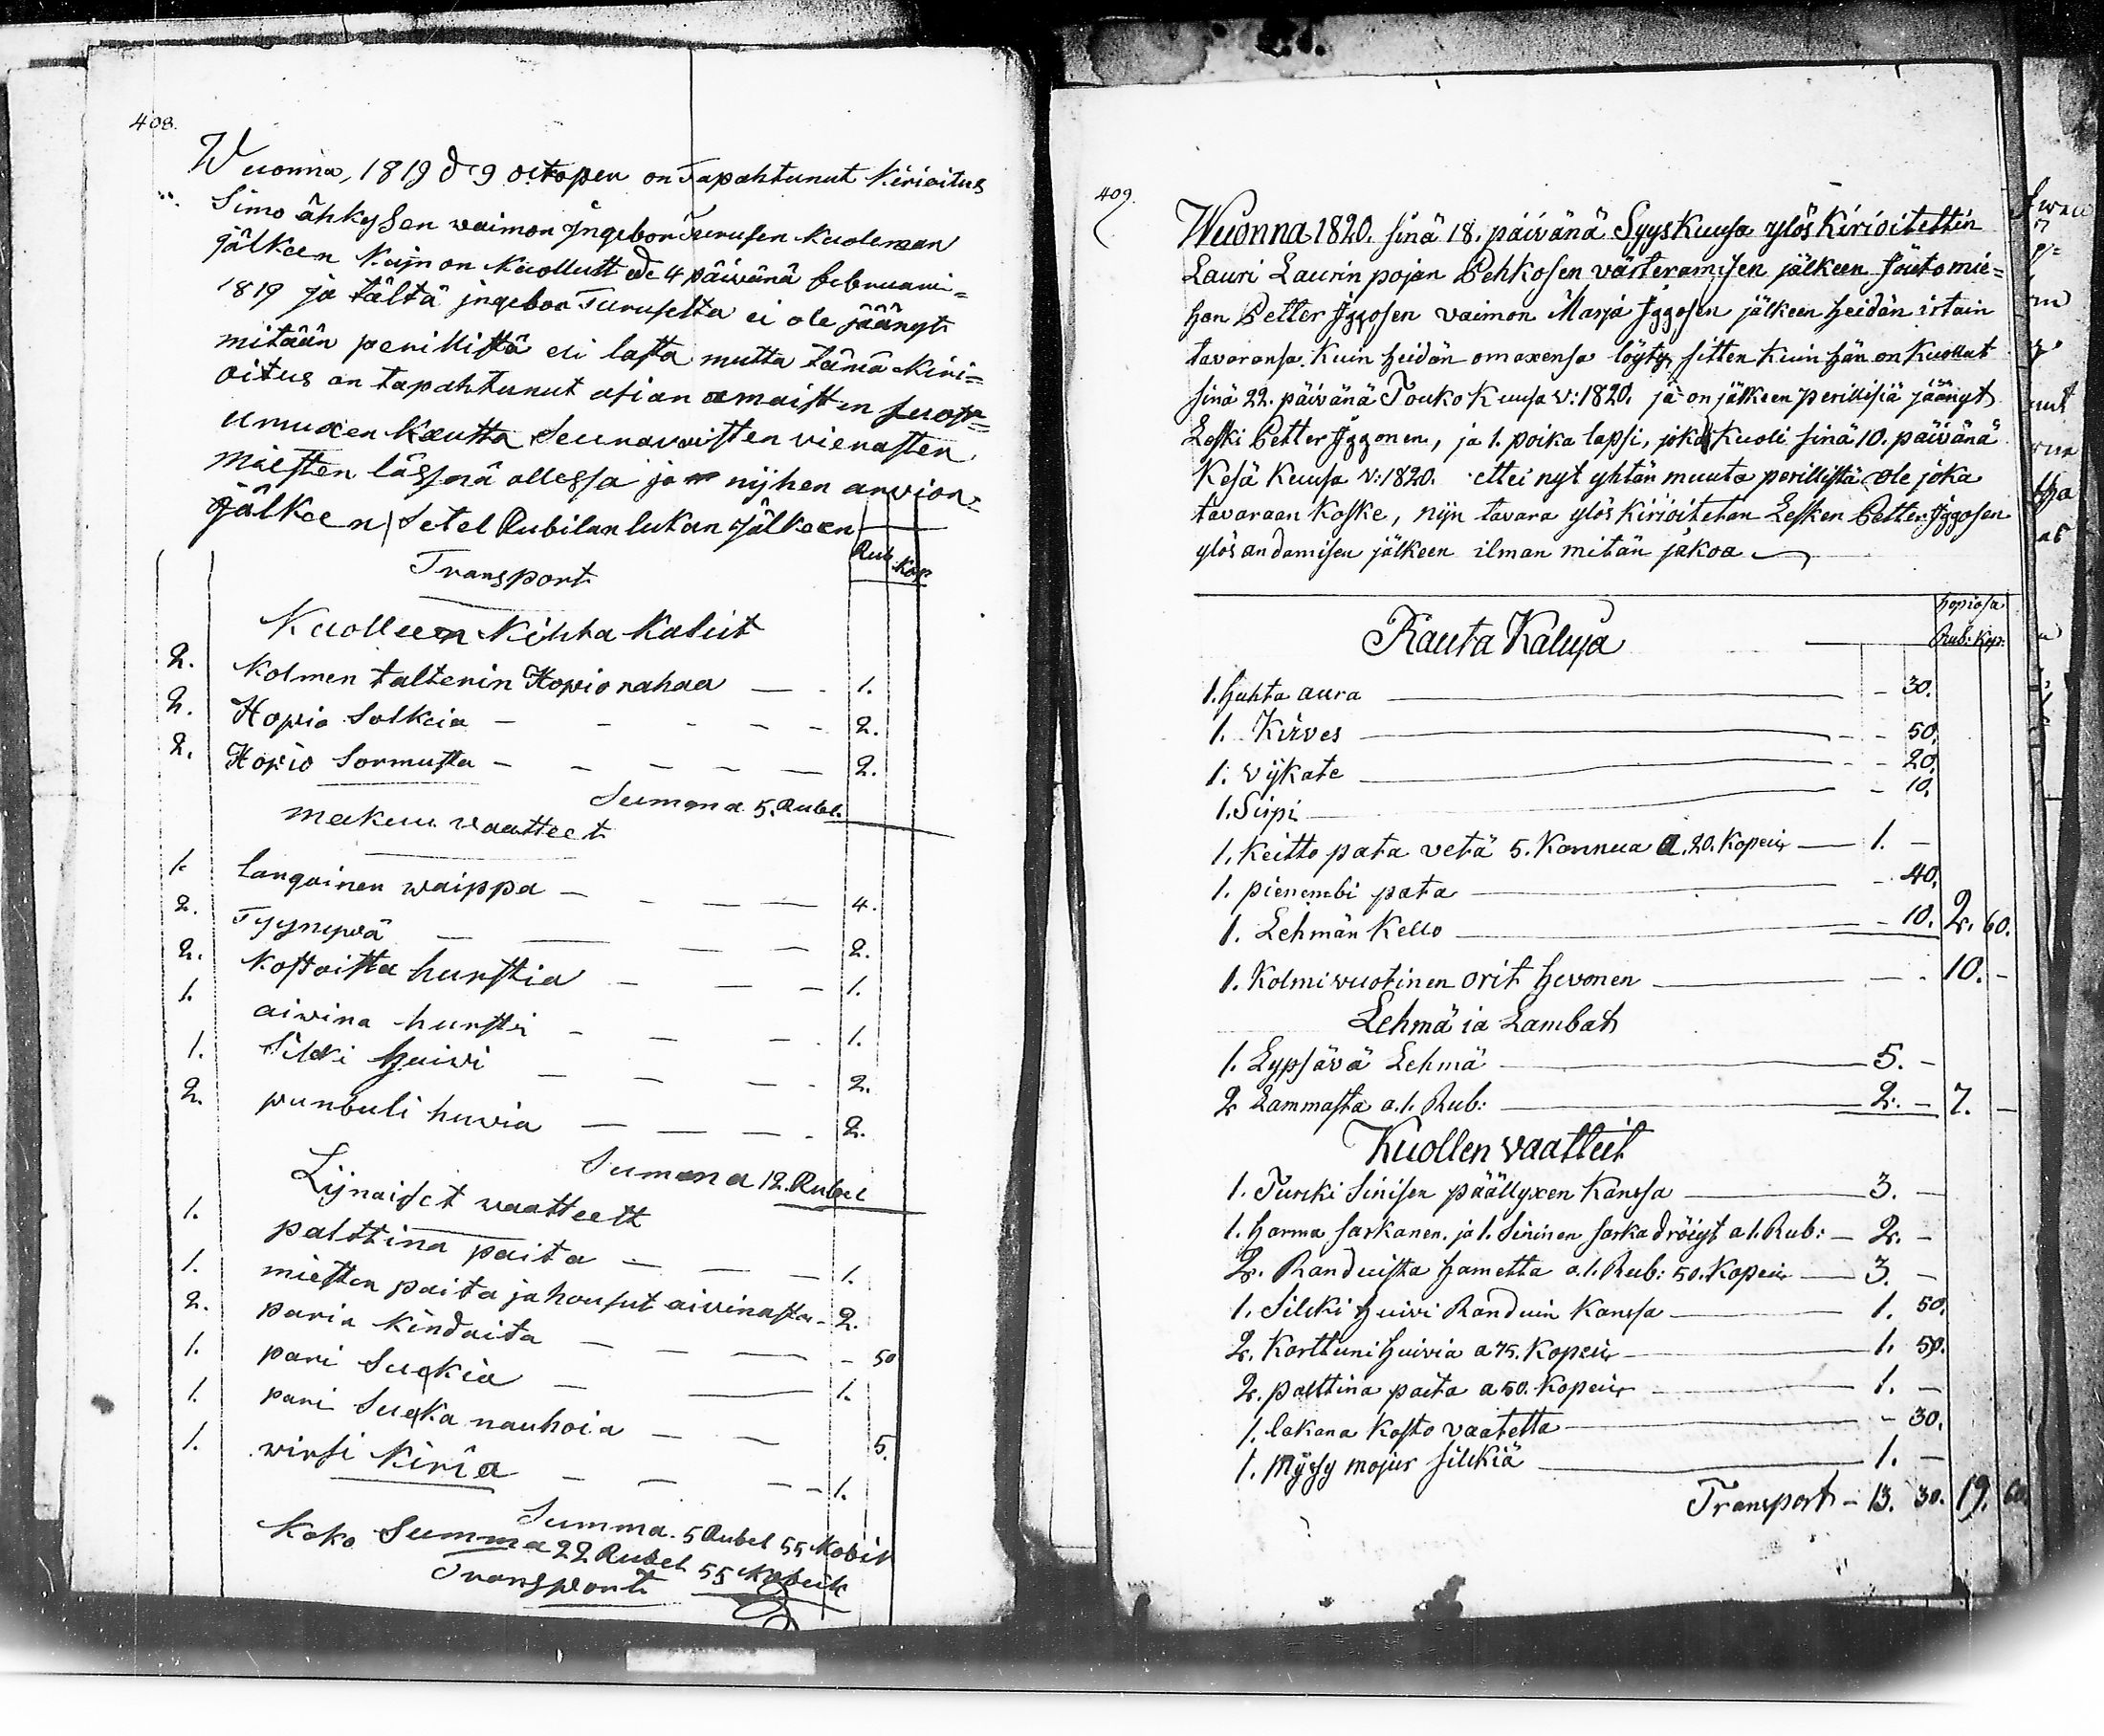 408.
Wuonna, 1819 d 9 octoper on Tapahtunut Kirioitus
Simo ähkysen waimon Jngebor Turusen Kuoleman
jälkeen Kujn on Kuollutt de 4 päiwänä februarii=
1819 ja tältä jngebor Turuselta ei ole jäänyt
mitään perillistä eli lasta mutta tämä kiri=
oitus on tapahtunut asian omaisten suos=
umuxen kautta Seurawaisten vierasten
miesten läsnä ollessa ja nijhen arvion
jälkeen Setel Rubilan lukun jälkeen
Rub. Kop.
Transport
Kuolleen Kihla Kalut
2. Kolmen talterin Hopio rahaa — 1.
2. Hopia Solkeia — 2.
2. Hopio Sormusta — 2.
Summa 5. Rubel.
makuu vaatteet
1. langainen waippa — 4.
2. Tyynywä — 2.
2. Kostoista hurstia — 1.
1. aiwina hursti — 1.
1. Silki huiwi — 2.
2. punbuli huvia — 2.
Summa 12. Rubel
Lijnaiset waatteett
1. palttina paita — 1.
1. miesten paita ja housut aivinasta - 2.
2. paria Kindaita — 50
1. pari Sukkia — 1.
1. pari Sukka nauhoia — 5.
1. wirsi Kiria — 1.
Summa. 5 Rubel 55 Kobik
Koko Summa 22 Rubel 55 Kobeik
Transport
409.
Wuonna 1820. sinä 18. päivänä SyysKuusa ylös Kirioitettin
Lauri Laurin pojan Pehkosen västeramisen jälkeen Jouto mie=
hen Petter Jggosen vaimon Marja Jggosen jälkeen heidän irtain
tavaransa. Kuin heidän omaxensa löyty, sitten Kuin hän on Kuollut
sinä 22. päivänä ToukoKuusa v: 1820. ja on jälkeen perillisiä jäänyt
Leski Petter Jggonen, ja 1. poika lapsi, joka Kuoli sinä 10. päivänä
Kesä Kuusa v: 1820. ettei nyt yhtän muuta perillistä ole joka
tavaraan Koske, nijn tavara ylös Kirioitetan Lesken Petter Jggosen
ylös andamisen jälkeen ilman mitän jakoa —
hopiosa
Rub: Kop:
Rauta Kaluja
1. huhta aura — 30.
1. Kirves — 50.
1. vijkate — 20.
1. Sirpi — 10.
1. Keitto pata vetä 5. Kannua a. 20. Kopeik — 1. -
1. pienembi pata — 40.
1. Lehmän Kello — 10. 2. 60.
1. Kolmivuotinen orit hevonen — 10. -
Lehmä ia Lambat
1. Lypsävä Lehmä — 5. -
2 Lammasta a. 1. Rub: — 2. - 7. -
Kuollen vaatteit
1. Turcki Sinisen päällyxen Kanssa — 3. -
1. harma sarkanen. ja 1. Sininen sarka dröigt a 1. Rub: — 2. -
2. Randuista hametta a. 1. Rub: 50. Kopeik — 3. -
1. Silcki huivi Randuin Kanssa — 1. 50.
2. Karttuni huivia a 75. Kopeik — 1. 50.
2. palttina paita a 50. Kopeik — 1. -
1. lakana Kosto vaatetta — 30.
1. Myssy mojur silckiä — 1. -
Transport - 13. 30. 19. 60.